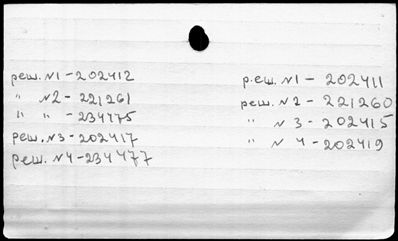 реш. N1 - 202412
" N2 - 221261
" " - 234475
реш. N3 - 202417
реш. N4 - 234477
реш. N1 - 202411
реш. N2 - 221260
" N 3 - 202415
" N 4 - 202419